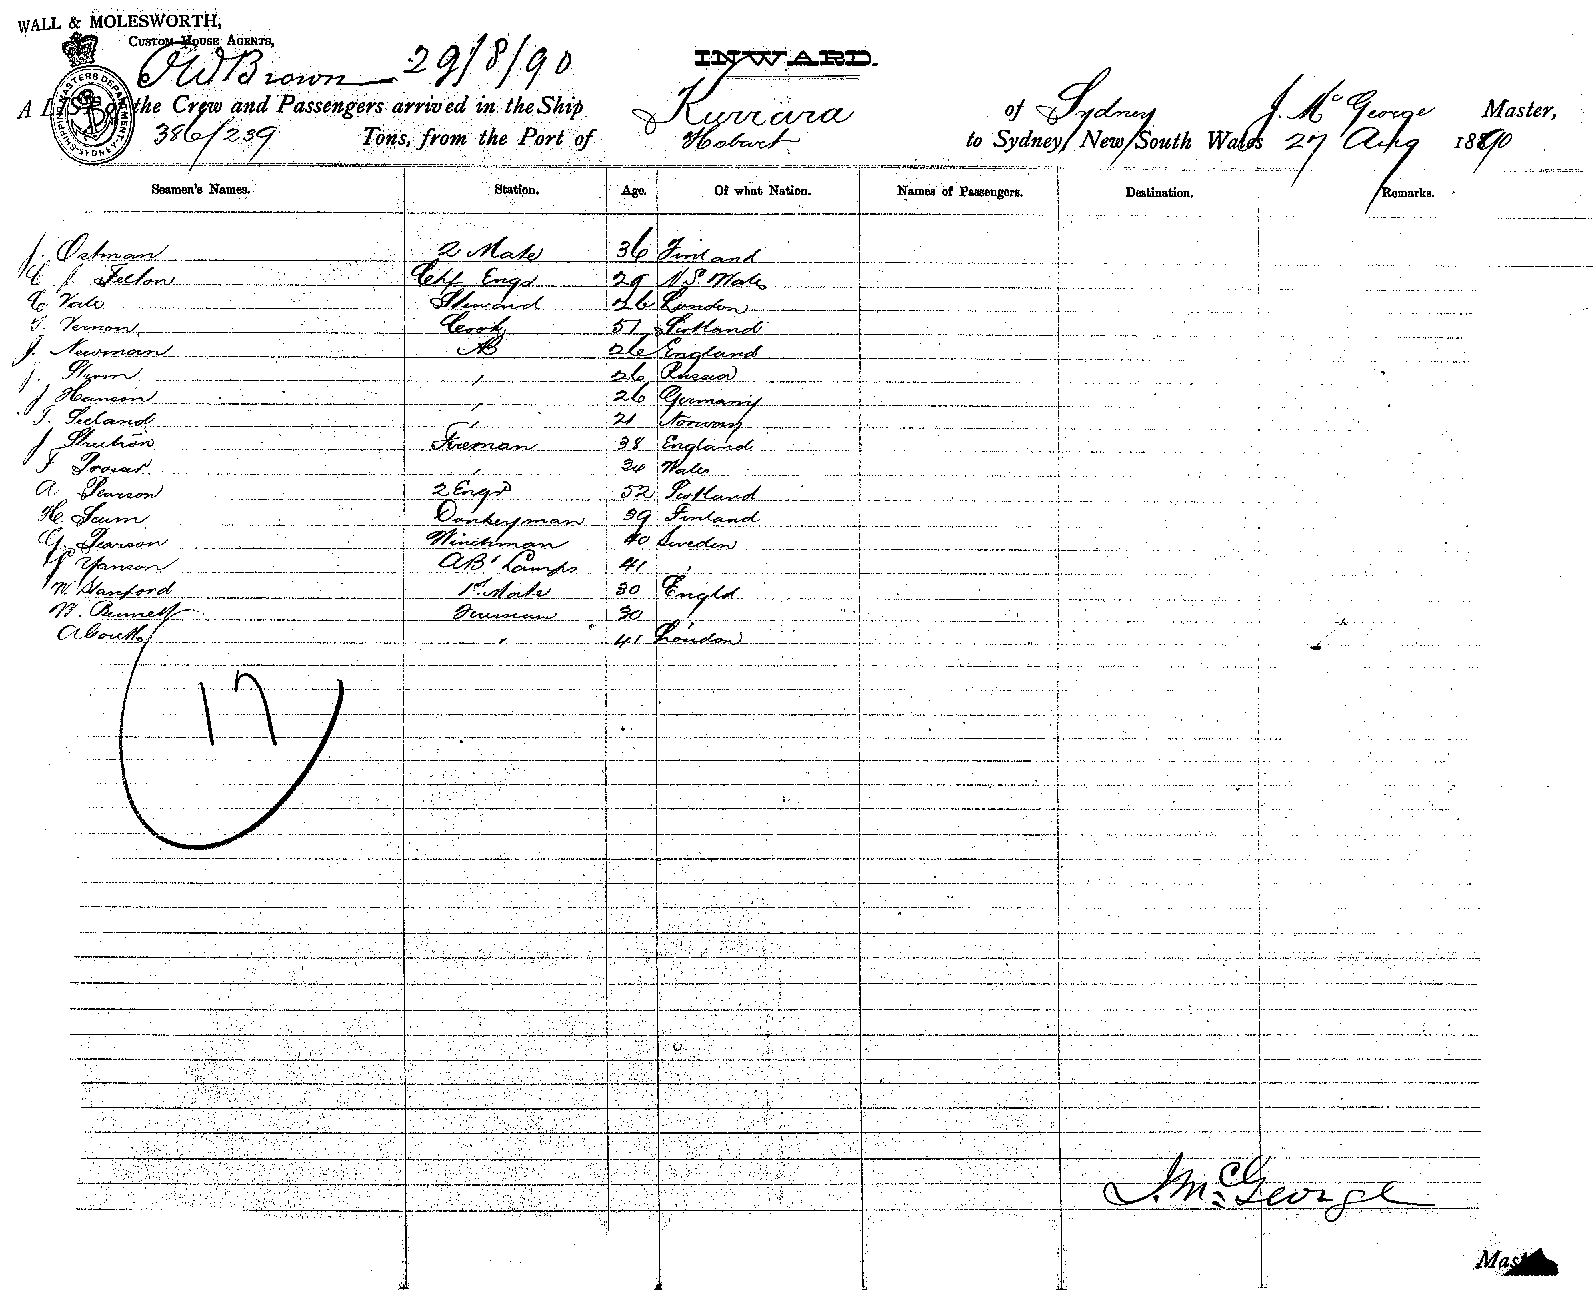 WALL & MOLESWORTH,
CUSTOM HOUSE AGENTS,
Brown 29/8/90
INWARD.
A LIST of the Crew and Passengers arrived in the Ship Kurrara of Sydney J. McGeorge Master,
386/239 Tons, from the Port of Hobart to Sydney New South Wales 27 Aug 1890
SHIPPING MASTERS DEPARTMENT SYDNEY
Seamen's Names. Station. Age. Of what Nation. Names of Passengers. Destination. Remarks.
J. Ostman 2 Mate 36 Finland
C J Felton Chf Engr 29 N S Wales
C Vale Steward 26 London
T. Vernon Cook 51 Scotland
J. Newman AB 26 England
J. Strom " 26 Russia
J Hanson " 26 Germany
T. Seeland " 21 Norway
J Fireman 38 England
F Prosser " 34 Wales
A Pearson 2 Engr 52 Scotland
H. Donkeyman 39 Finland
G. Pearson Winchman 40 Sweden
J Yanson AB & Lamps 41 "
W. Hanford 1st Mate 30 Engld
W. Bennett Fireman 30 "
A " 41 London
17
J. McGeorge
Mas